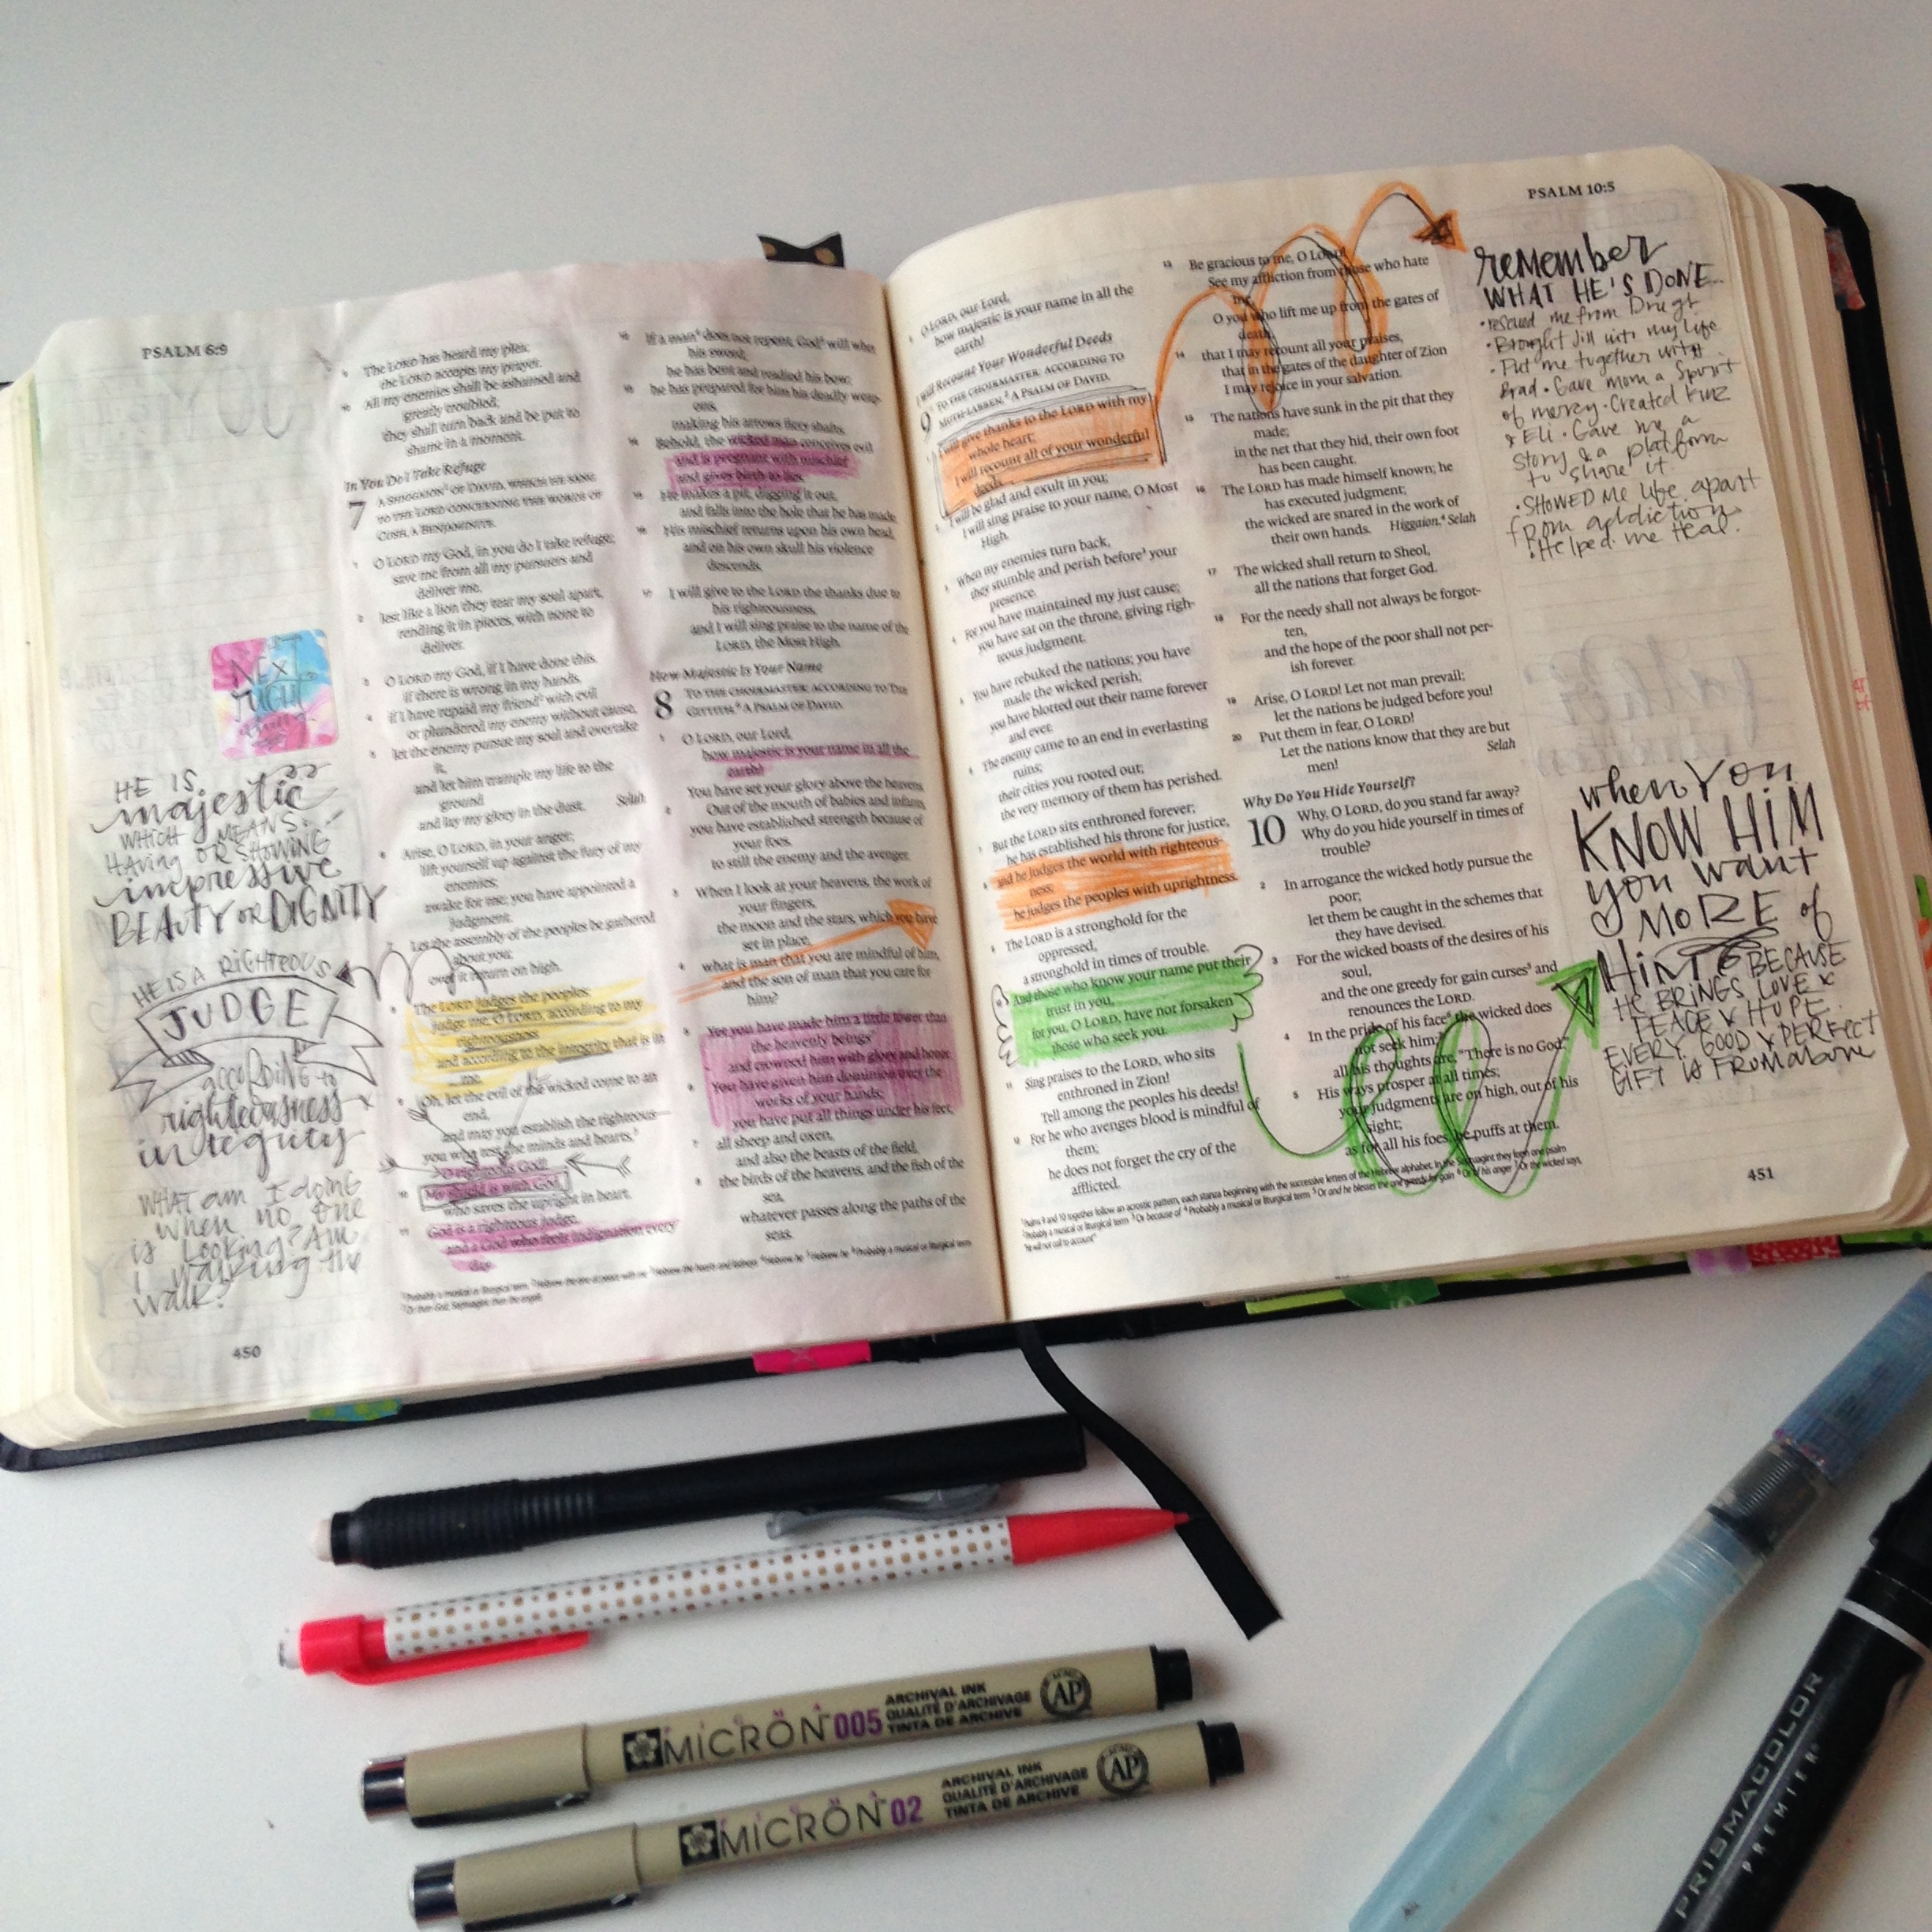 PSALM 6:9
9 The LORD has heard my plea;
the LORD accepts my prayer.
10 All my enemies shall be ashamed and
greatly troubled;
they shall turn back and be put to
shame in a moment.
In You Do I Take Refuge
7 A SHIGGAION¹ OF DAVID, WHICH HE SANG
TO THE LORD CONCERNING THE WORDS OF
CUSH, A BENJAMINITE.
1 O LORD my God, in you do I take refuge;
save me from all my pursuers and
deliver me,
2 lest like a lion they tear my soul apart,
rending it in pieces, with none to
deliver.
3 O LORD my God, if I have done this,
if there is wrong in my hands,
4 if I have repaid my friend² with evil
or plundered my enemy without cause,
5 let the enemy pursue my soul and overtake
it,
and let him trample my life to the
ground
and lay my glory in the dust. Selah
6 Arise, O LORD, in your anger;
lift yourself up against the fury of my
enemies;
awake for me; you have appointed a
judgment.
7 Let the assembly of the peoples be gathered
about you;
over it return on high.
8 The LORD judges the peoples;
judge me, O LORD, according to my
righteousness
and according to the integrity that is in
me.
9 Oh, let the evil of the wicked come to an
end,
and may you establish the righteous—
you who test the minds and hearts,³
O righteous God!
10 My shield is with God,
who saves the upright in heart.
11 God is a righteous judge,
and a God who feels indignation every
day.
12 If a man⁴ does not repent, God⁵ will whet
his sword;
he has bent and readied his bow;
13 he has prepared for him his deadly weap-
ons,
making his arrows fiery shafts.
14 Behold, the wicked man conceives evil
and is pregnant with mischief
and gives birth to lies.
15 He makes a pit, digging it out,
and falls into the hole that he has made.
16 His mischief returns upon his own head,
and on his own skull his violence
descends.
17 I will give to the LORD the thanks due to
his righteousness,
and I will sing praise to the name of the
LORD, the Most High.
How Majestic Is Your Name
8 TO THE CHOIRMASTER: ACCORDING TO THE
GITTITH.⁶ A PSALM OF DAVID.
1 O LORD, our Lord,
how majestic is your name in all the
earth!
You have set your glory above the heavens.
2 Out of the mouth of babies and infants,
you have established strength because of
your foes,
to still the enemy and the avenger.
3 When I look at your heavens, the work of
your fingers,
the moon and the stars, which you have
set in place,
4 what is man that you are mindful of him,
and the son of man that you care for
him?
5 Yet you have made him a little lower than
the heavenly beings⁷
and crowned him with glory and honor.
6 You have given him dominion over the
works of your hands;
you have put all things under his feet,
7 all sheep and oxen,
and also the beasts of the field,
8 the birds of the heavens, and the fish of the
sea,
whatever passes along the paths of the
seas.
NEXT
RIGHT
HE IS
majestic
WHICH MEANS:
HAVING OR SHOWING
impressive
BEAUTY or DIGNITY
HE IS A RIGHTEOUS
JUDGE
according to
righteousness
integrity
WHAT am I doing
when no one
is looking? Am
I walking the
walk?
450
PSALM 10:5
9 O LORD, our Lord,
how majestic is your name in all the
earth!
I Will Recount Your Wonderful Deeds
9 TO THE CHOIRMASTER: ACCORDING TO
MUTH-LABBEN.¹ A PSALM OF DAVID.
1 I will give thanks to the LORD with my
whole heart;
I will recount all of your wonderful
deeds.
2 I will be glad and exult in you;
I will sing praise to your name, O Most
High.
3 When my enemies turn back,
they stumble and perish before² your
presence.
4 For you have maintained my just cause;
you have sat on the throne, giving righ-
teous judgment.
5 You have rebuked the nations; you have
made the wicked perish;
you have blotted out their name forever
and ever.
6 The enemy came to an end in everlasting
ruins;
their cities you rooted out;
the very memory of them has perished.
7 But the LORD sits enthroned forever;
he has established his throne for justice,
8 and he judges the world with righteous-
ness;
he judges the peoples with uprightness.
9 The LORD is a stronghold for the
oppressed,
a stronghold in times of trouble.
10 And those who know your name put their
trust in you,
for you, O LORD, have not forsaken
those who seek you.
11 Sing praises to the LORD, who sits
enthroned in Zion!
Tell among the peoples his deeds!
12 For he who avenges blood is mindful of
them;
he does not forget the cry of the
afflicted.
13 Be gracious to me, O LORD!
See my affliction from those who hate
me,
O you who lift me up from the gates of
death,
14 that I may recount all your praises,
that in the gates of the daughter of Zion
I may rejoice in your salvation.
15 The nations have sunk in the pit that they
made;
in the net that they hid, their own foot
has been caught.
16 The LORD has made himself known; he
has executed judgment;
the wicked are snared in the work of
their own hands. Higgaion.⁴ Selah
17 The wicked shall return to Sheol,
all the nations that forget God.
18 For the needy shall not always be forgot-
ten,
and the hope of the poor shall not per-
ish forever.
19 Arise, O LORD! Let not man prevail;
let the nations be judged before you!
20 Put them in fear, O LORD!
Let the nations know that they are but
men! Selah
Why Do You Hide Yourself?
10 Why, O LORD, do you stand far away?
Why do you hide yourself in times of
trouble?
2 In arrogance the wicked hotly pursue the
poor;
let them be caught in the schemes that
they have devised.
3 For the wicked boasts of the desires of his
soul,
and the one greedy for gain curses⁵ and
renounces the LORD.
4 In the pride of his face⁶ the wicked does
not seek him;
all his thoughts are, "There is no God."
5 His ways prosper at all times;
your judgments are on high, out of his
sight;
as for all his foes, he puffs at them.
remember
WHAT HE'S DONE
• rescued me from
• Brought Jill into my life
• Put me together with
Brad • Gave mom a spirit
of mercy • Created
& Eli • Gave me a
story & a platform
to share it
• SHOWED Me life apart
from addiction
• Helped me Heal.
when You
KNOW HIM
you want
MORE of
HIM BECAUSE
HE BRINGS LOVE &
PEACE & HOPE
EVERY GOOD & PERFECT
GIFT is FROM above
451
MICRON 005 ARCHIVAL INK
QUALITÉ D'ARCHIVAGE
TINTA DE ARCHIVE
AP
MICRON 02 ARCHIVAL INK
QUALITÉ D'ARCHIVAGE
TINTA DE ARCHIVE
AP
PRISMACOLOR
PREMIER